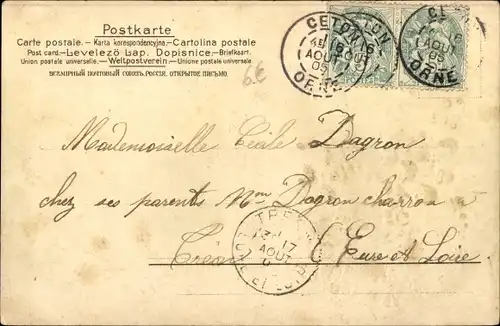 Postkarte
Carte postale. — Karta korespondencyjna — Cartolina postale
Post card. — Levelező Lap. Dopisnice. — Briefkaart.
Union postale universelle. — Weltpostverein. — Unione postale universale
ВСЕМІРНЫЙ ПОЧТОВЫЙ СОЮЗЪ. РОССІЯ. ОТКРЫТОЕ ПИСЬМО.
CETON
16
AOUT
05
ORNE
CETON
16
AOUT
05
ORNE
6€
Mademoiselle Cécile Dagron
chez ses parents Mm Dagron charron à
Eure et Loire
17
AOUT